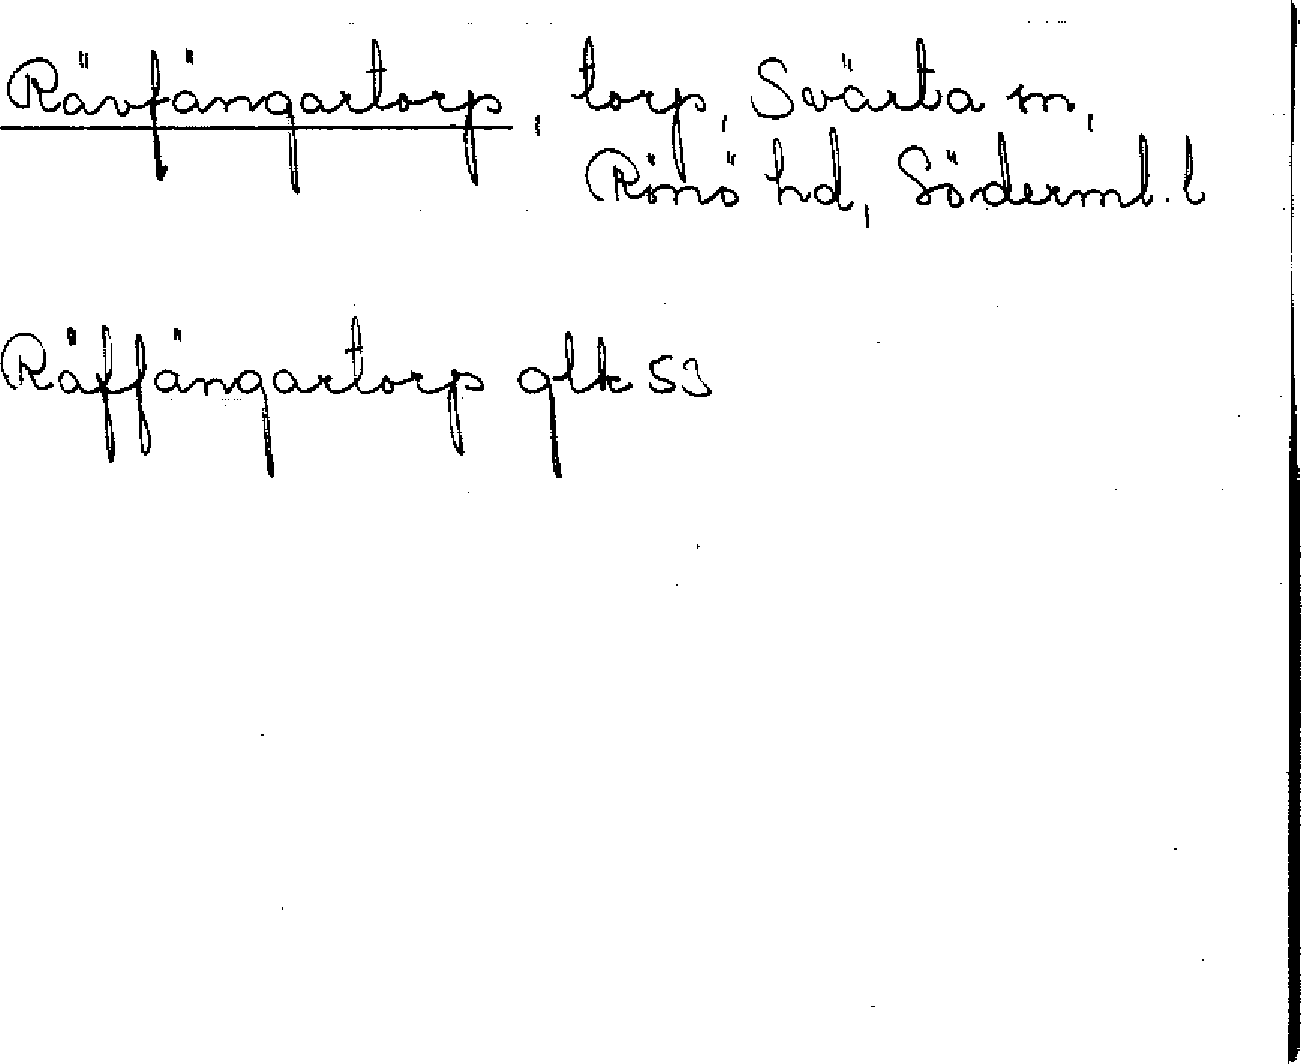 Rävfängartorp, torp, Svärta sn,
Rönö hd, Söderml. l
Räffängartorp glk 53